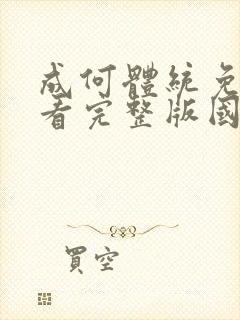 成何體統免
看完整版國
買空